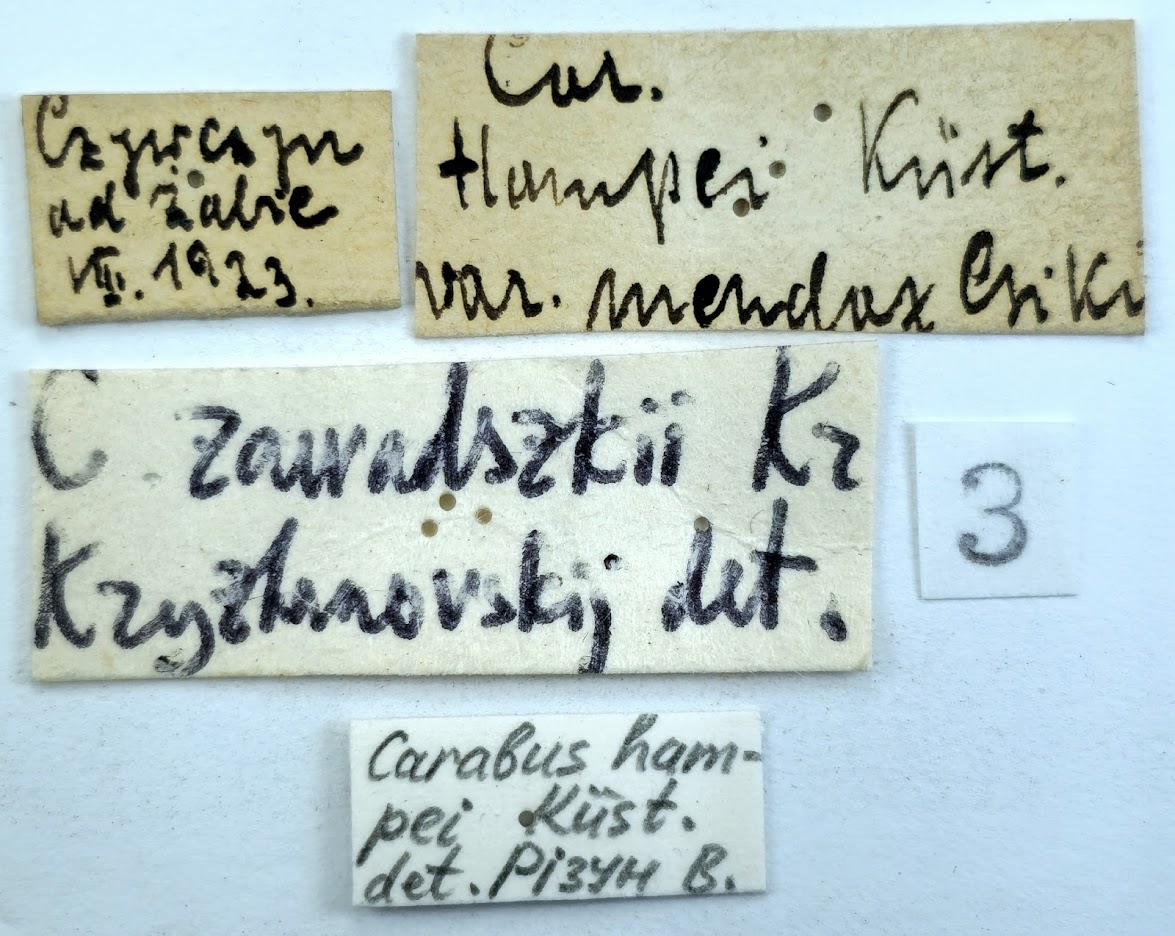 Czywczyn
ad Żabie
VII. 1923.
Car.
Hampei Küst.
var. mendax Csiki
C. zawadszkii Kr
Kryzhanovskij det.
3
Carabus ham-
pei Küst.
det. Різун В.